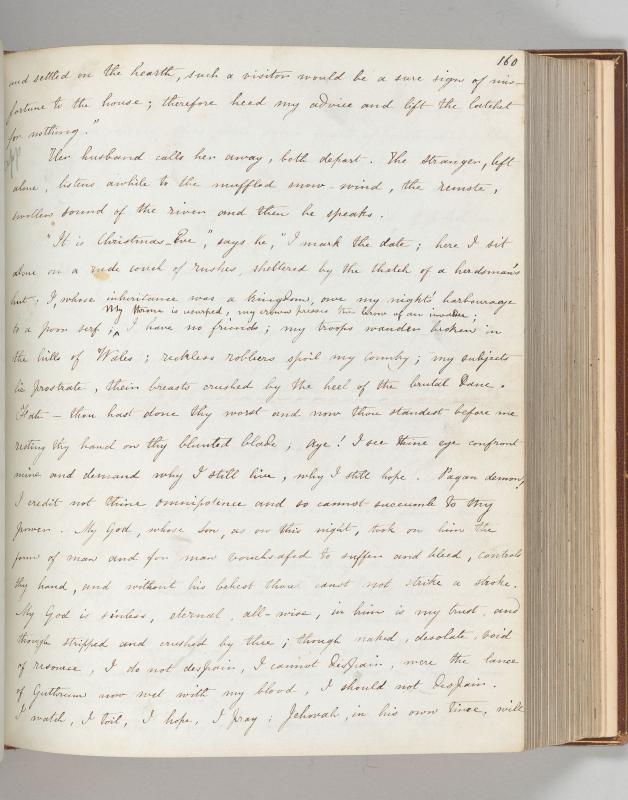 160
and settled on the hearth, such a visitor would be a sure sign of mis-
fortune to the house; therefore heed my advice and lift the latchet
for nothing."
Her husband calls her away, both depart. The stranger, left
alone, listens awhile to the muffled snow-wind, the remote,
swollen sound of the river and then he speaks.
"It is Christmas-Eve", says he, "I mark the date; here I sit
alone on a rude couch of rushes, sheltered by the thatch of a herdsman's
hut; I, whose inheritance was a kingdom, owe my night's harbourage
My throne is usurped, my crown presses the brow of an invader;
to a poor serf; I have no friends; my troops wander broken in
the hills of Wales; reckless robbers spoil my country; my subjects
lie prostrate, their breasts crushed by the heel of the brutal Dane.
Fate - thou hast done thy worst and now thou standest before me
resting thy hand on thy blunted blade; Aye! I see thine eye confront
mine and demand why I still live, why I still hope. Pagan demon,
I credit not thine omnipotence and so cannot succumb to thy
power. My God, whose Son, as on this night, took on him the
form of man and for man vouchsafed to suffer and bleed, controls
thy hand, and without his behest thou canst not strike a stroke.
My God is sinless, eternal, all-wise, in him is my trust, and
though stripped and crushed by thee; though naked, desolate, void
of resource, I do not despair, I cannot despair, were the lance
of Guthrum now wet with my blood, I should not despair.
I watch, I toil, I hope, I pray; Jehovah, in his own time, will